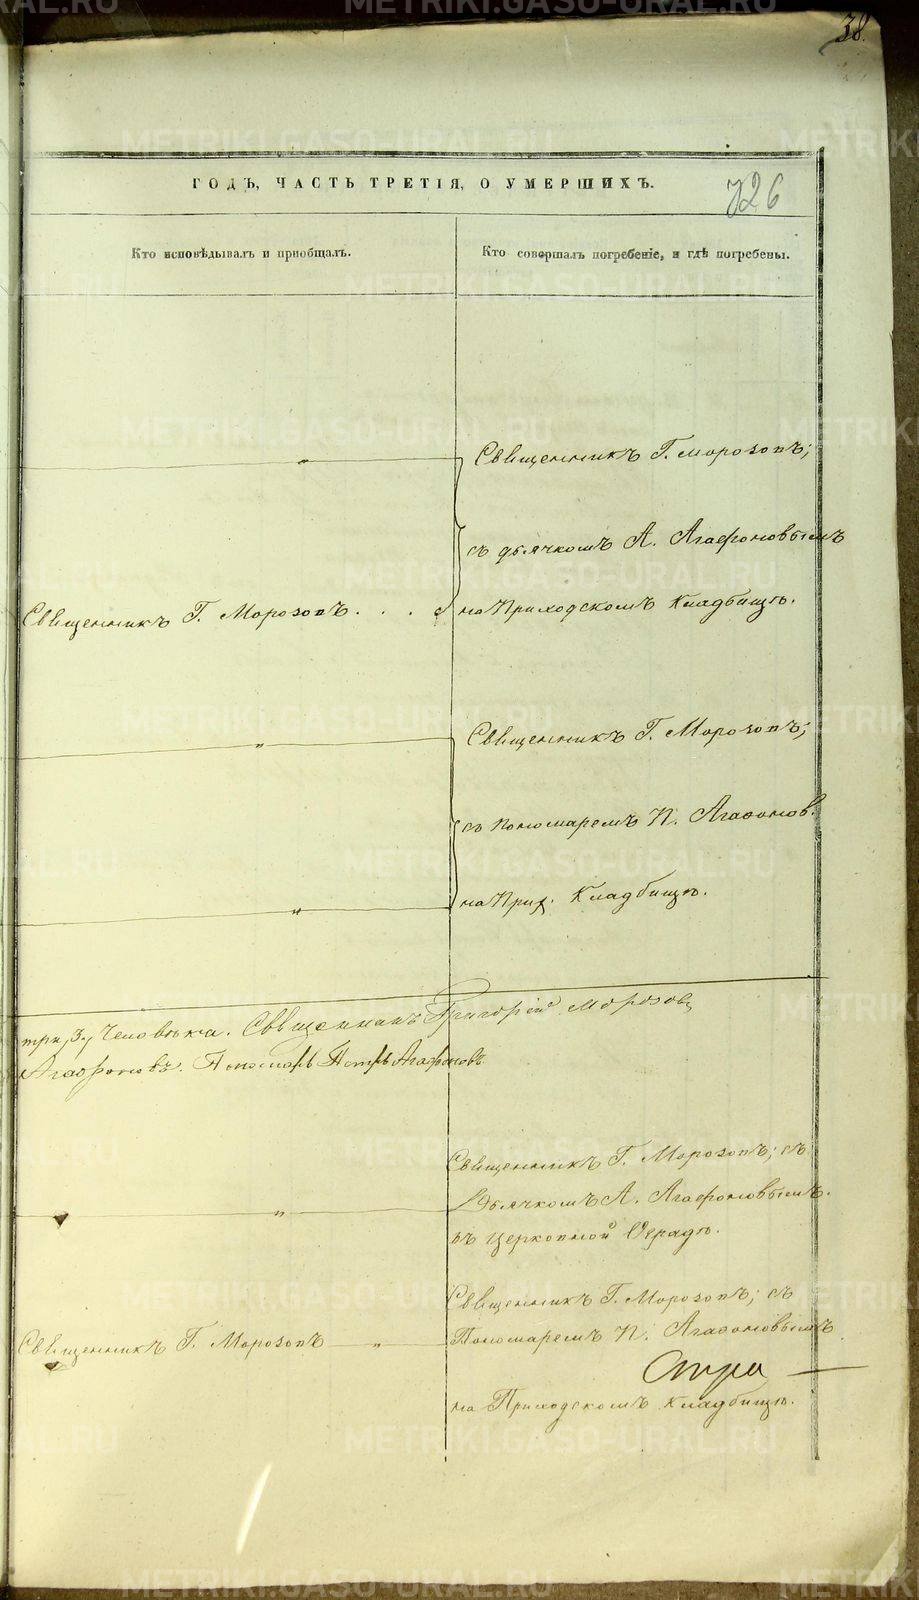 38.
ГОДЪ, ЧАСТЬ ТРЕТІЯ, О УМЕРШИХЪ.
726
Кто исповѣдывалъ и пріобщалъ.
Кто совершалъ погребеніе, и гдѣ погребены.
"
Священникъ Г. Морозовъ;
съ дьячкомъ А. Агафоновымъ
Священникъ Г. Морозовъ . . .
на Приходскомъ Кладбищѣ.
"
Священникъ Г. Морозовъ;
съ пономаремъ П. Агафонов.
"
на Прих. Кладбищѣ.
три, 3, Человѣка. Священникъ Григорій Морозовъ
Агафоновъ. Пономарь Петръ Агафоновъ
Священникъ Г. Морозовъ; съ
"
Дьячкомъ А. Агафоновымъ.
въ Церковной Оградѣ.
Священникъ Г. Морозовъ; съ
Священникъ Г. Морозовъ "
Пономаремъ П. Агафоновымъ
на Приходскомъ Кладбищѣ.
METRIKI.GASO-URAL.RU